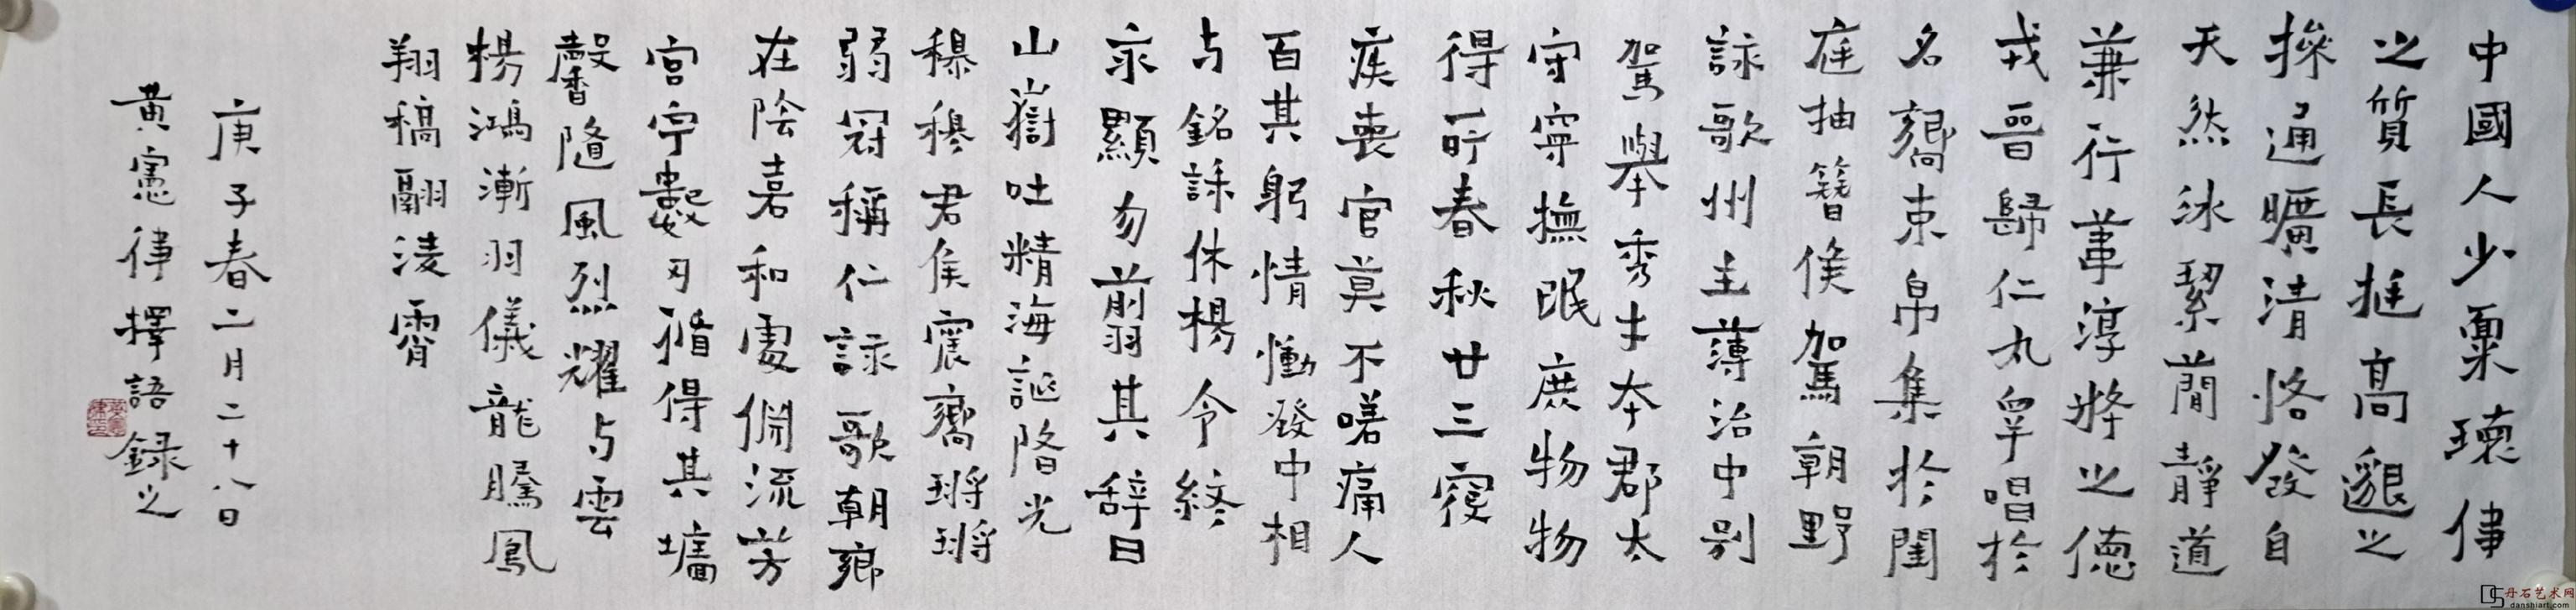 中國人少稟瓌偉
之質長挺高邈之
操通曠清恪發自
天然冰絜蕳靜道
兼行葦淳粹之德
戎晉歸仁九皋唱於
名嚮束帛集於閨
庭抽簪俟駕朝野
詠歌州主薄治中別
駕舉秀才本郡太
守寧撫氓庶物物
得所春秋廿三寢
疾喪官莫不嗟痛人
百其躬情慟發中相
与銘誄休楊令終
永顯勿翦其辭曰
山嶽吐精海誕陼光
穆穆君侯震嚮鏘鏘
弱冠稱仁詠歌朝鄉
在陰嘉和處淵流芳
宮宇數仞循得其墉
馨隨風烈耀与雲
楊鴻漸羽儀龍騰鳳
翔槁翮淩霄
庚子春二月二十八日
黃憲偉擇語錄之
丹石艺术网
danshiart.com